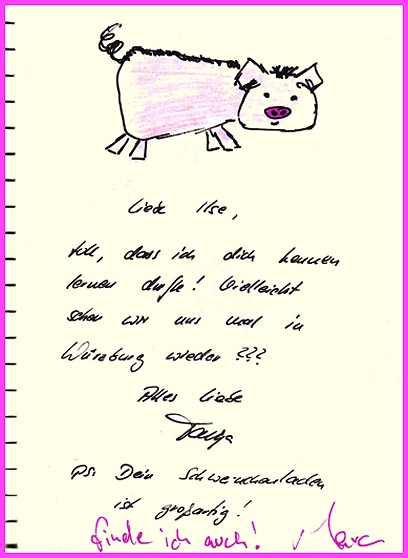 Liebe Ilse,
toll, dass ich dich kennen
lernen durfte! Vielleicht
sehen wir uns mal in
Würzburg wieder???
Alles Liebe
Tanja
PS: Dein Schweinchenladen
ist großartig!
finde ich auch!